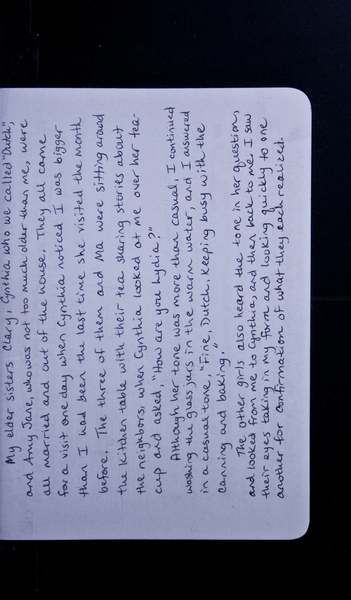 My elder sisters Clary, Cynthia who we called "Dutch",
and Amy Jane, who was not too much older than me, were
all married and out of the house. They all came
for a visit one day when Cynthia noticed I was bigger
than I had been the last time she visited the month
before. The three of them and Ma were sitting around
the kitchen table with their tea sharing stories about
the neighbors, when Cynthia looked at me over her tea-
cup and asked, "How are you Lydia?"
Although her tone was more than casual, I continued
washing the glass jars in the warm water, and I answered
in a casual tone, "Fine, Dutch. Keeping busy with the
canning and baking."
The other girls also heard the tone in her question,
and looked from me to Cynthia, and then back to me. I saw
their eyes taking in my form and looking quickly to one
another for confirmation of what they each realized.